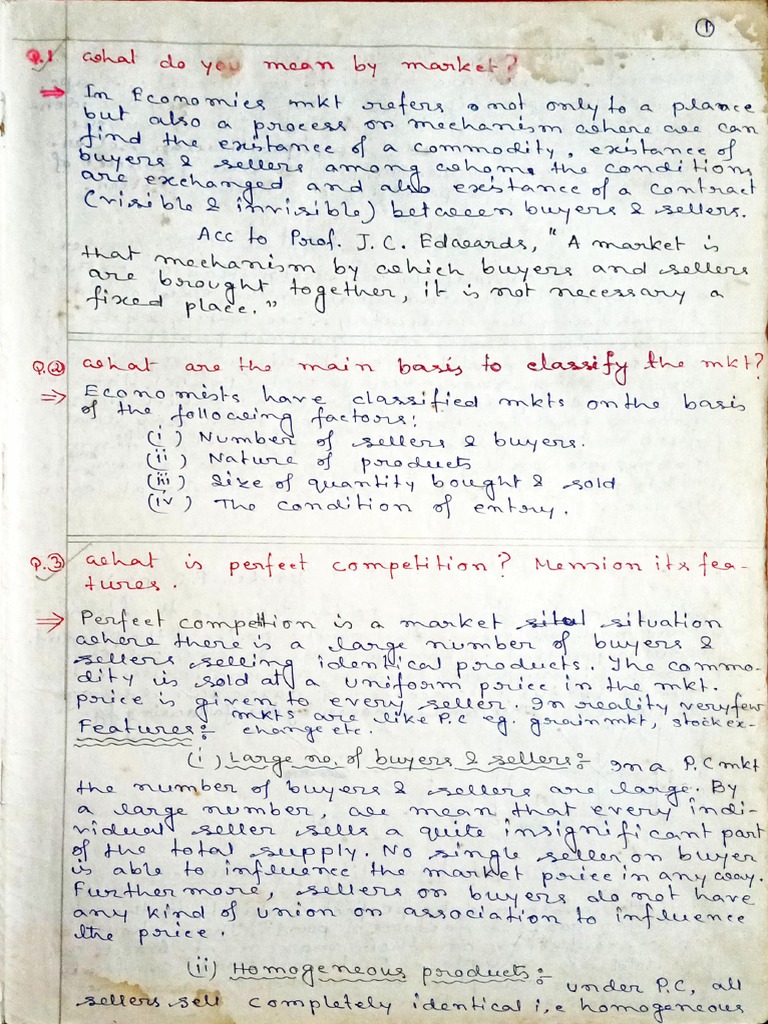 1
Q.1 what do you mean by market?
⇒ In Economics mkt refers not only to a plance
but also a process or mechanism where we can
find the existance of a commodity, existance of
buyers & sellers among whom the conditions
are exchanged and also existance of a contract
(visible & invisible) between buyers & sellers.
Acc to Prof. J.C. Edwards, "A market is
that mechanism by which buyers and sellers
are brought together, it is not necessary a
fixed place."
Q.2 what are the main basis to classify the mkt?
⇒ Economists have classified mkts on the basis
of the following factors:
(i) Number of sellers & buyers.
(ii) Nature of products
(iii) Size of quantity bought & sold
(iv) The condition of entry.
Q.3 what is perfect competition? Mension its fea-
tures.
⇒ Perfect competion is a market situation
where there is a large number of buyers &
sellers selling identical products. The commo-
dity is sold at a uniform price in the mkt.
price is given to every seller. In reality very few
mkts are like P.C eg. grain mkt, stock ex-
Features:- change etc.
(i) Large no. of buyers & sellers:- In a P.C mkt
the number of buyers & sellers are large. By
a large number, we mean that every indi-
vidual seller sells a quite insignificant part
of the total supply. No single seller or buyer
is able to influence the market price in any way.
Furthermore, sellers or buyers do not have
any kind of union or association to influence
the price.
(ii) Homogeneous products:- under P.C, all
sellers sell completely identical i,e homogeneous